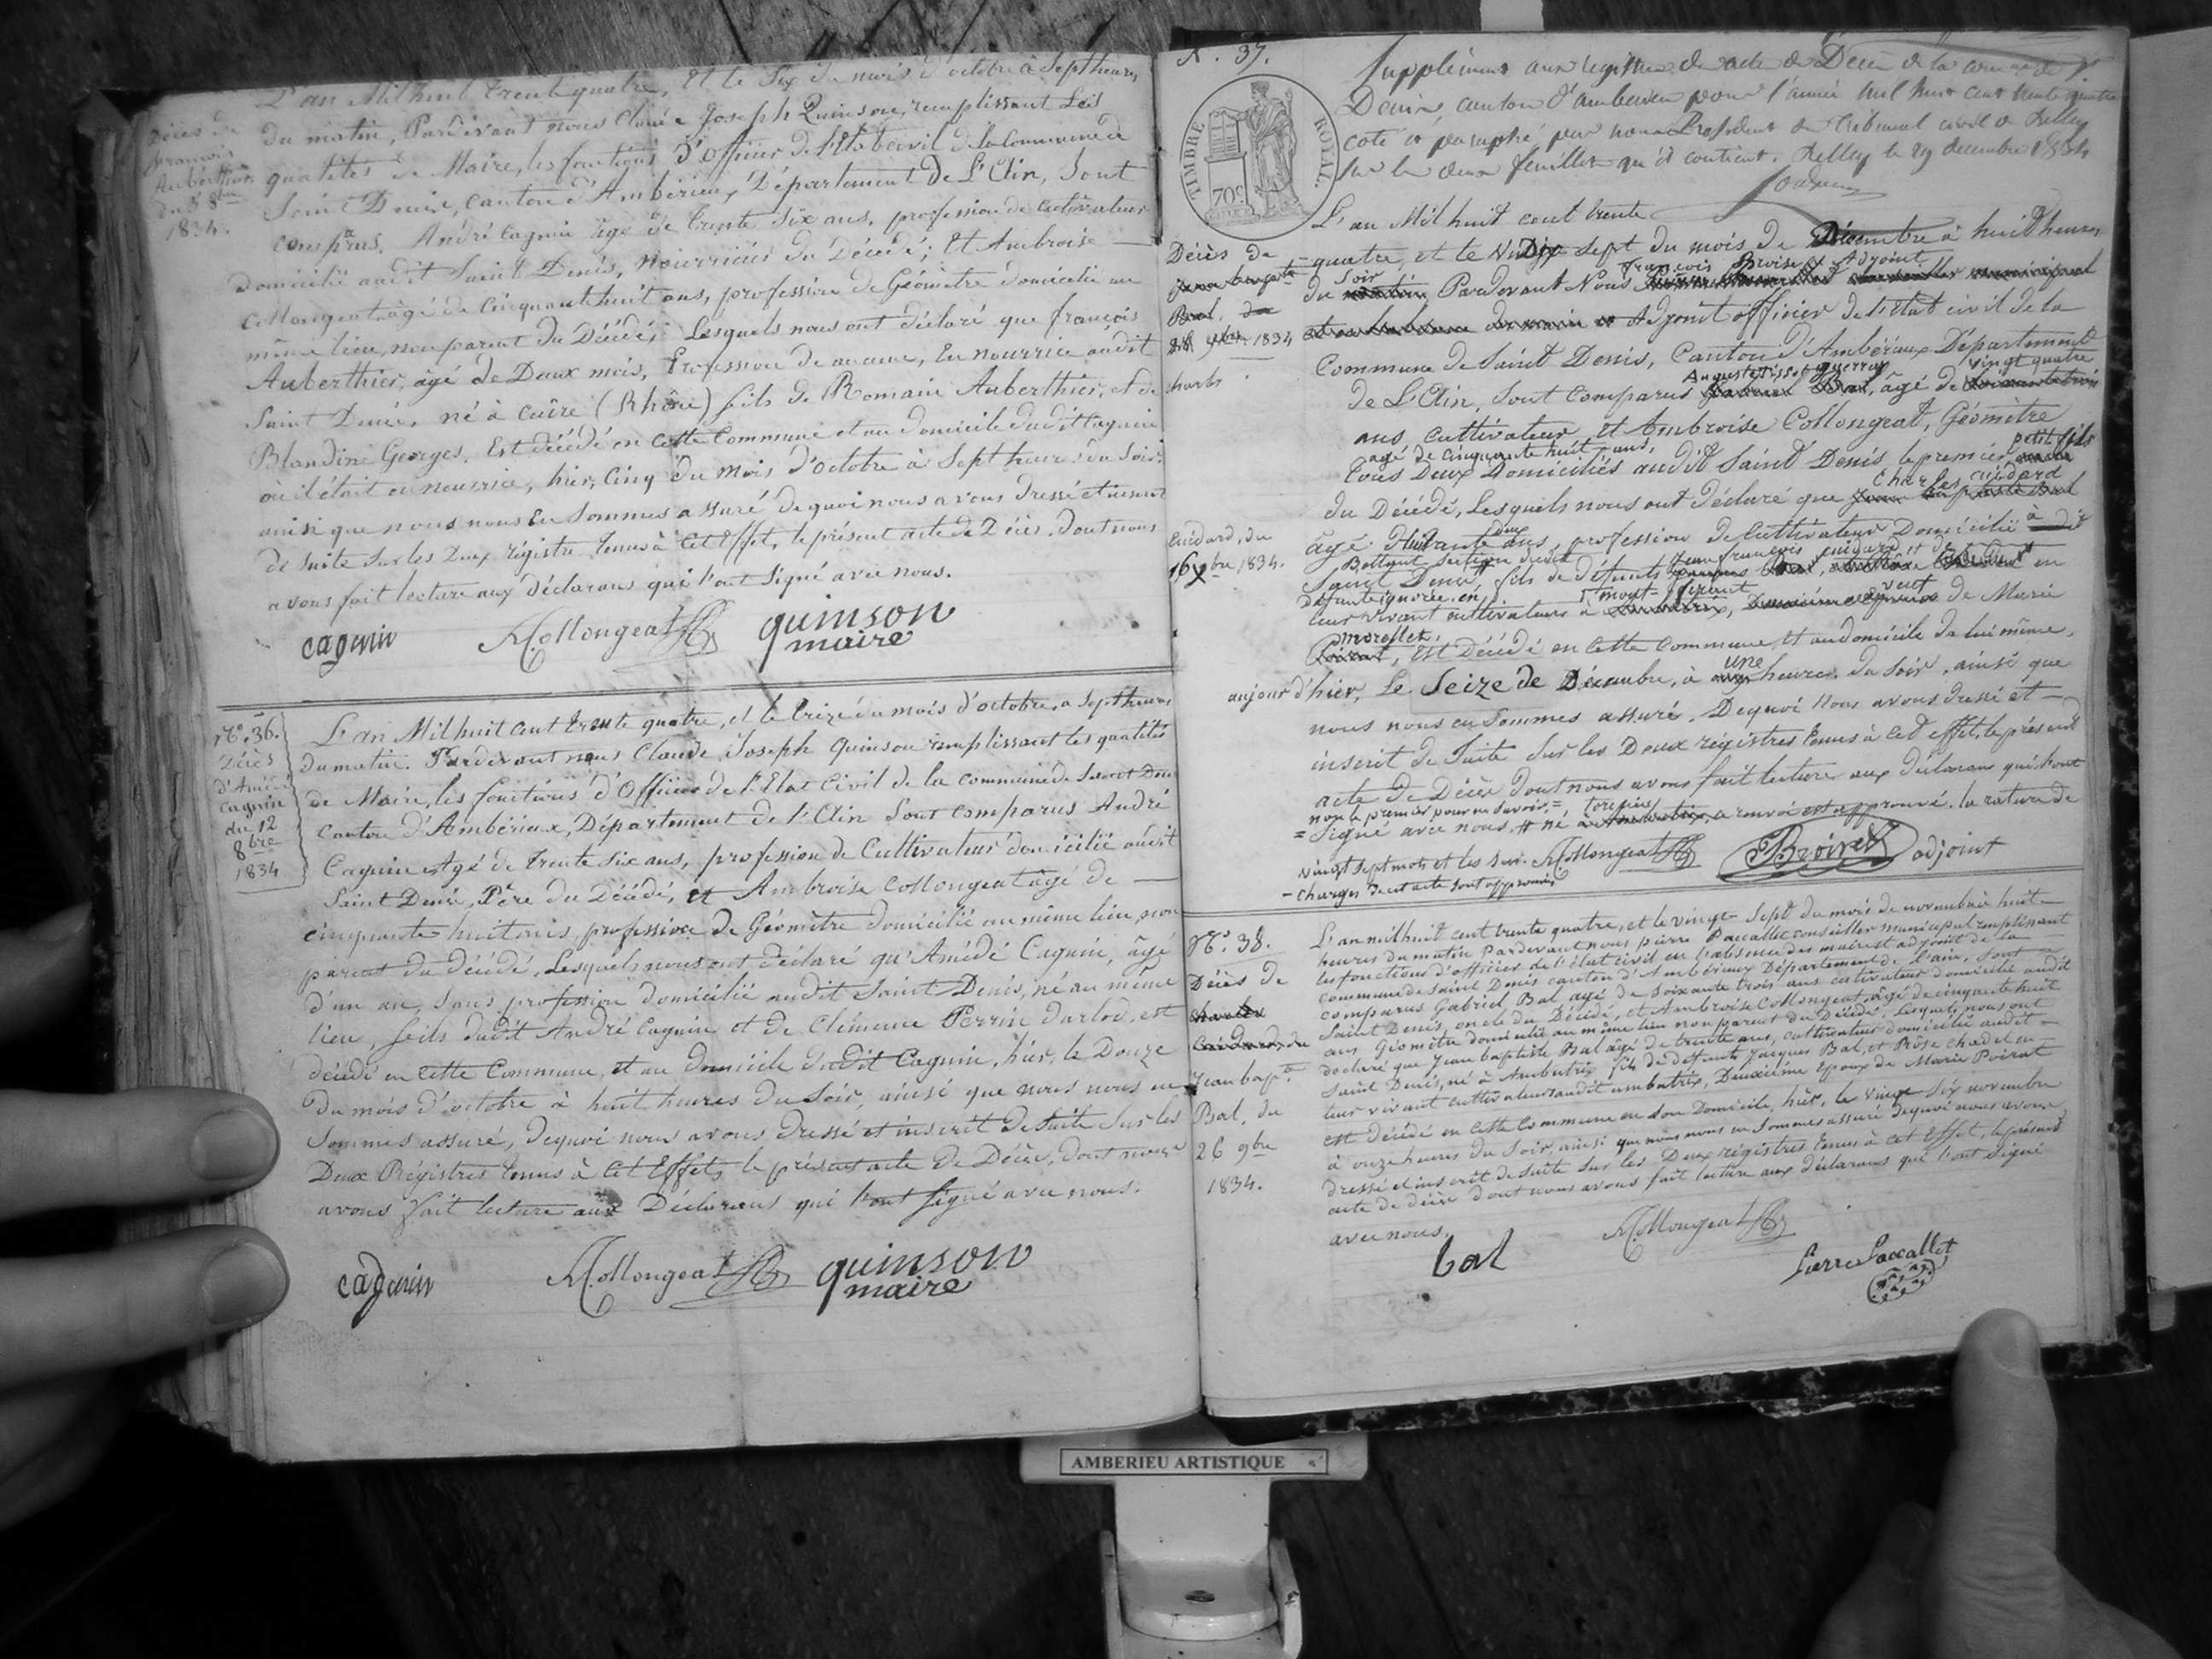 Décès de
françois
Auberthier
du 5 8bre
1834.
L'an Mil huit trente quatre, et le Six du mois d'octobre à Sept heures
du matin, Pardevant nous Claude Joseph Quinson, remplissant les
qualités de Maire, les fonctions d'Officier de l'Etat civil de la Commune de
Saint Denis, canton d'Ambérieux, Département de L'Ain, Sont
comparus. André Cagnin âgé de trente Six ans, profession de Cultivateur
domicilié audit Saint Denis, nourricier du Décédé; Et Ambroise
Collongeat âgé de Cinquante huit ans, profession de Géomètre domicilié au
même lieu, non parent du Décédé; Lesquels nous ont déclaré que françois
Auberthier, âgé de Deux mois, Profession de aucune, En nourrice audit
Saint Denis, né à Cuire (Rhône) fils de Romain Auberthier, et de
Blandine Georges, Est décédé en cette Commune et au domicile dudit Cagnin
où il était en nourrice, hier, Cinq du mois d'octobre à Sept heures du Soir,
ainsi que nous nous En Sommes assuré de quoi nous avons Dressé et inscrit
de Suite Sur les Deux régistre tenus à Cet Effet, le présent acte de Décès. Dont nous
avons fait lecture aux Déclarans qui l'ont Signé avec nous.
cagnin Collongeat quinson
maire
No. 36.
Décès
d'Amédé
Cagnin
du 12
8bre
1834
L'an Mil huit Cent trente quatre, et le treize du mois d'octobre, a Sept heures
du matin. Pardevant nous Claude Joseph Quinson remplissant les qualités
de Maire, les fonctions d'Officier de l'Etat Civil de la commune de Saint Denis
Canton d'Ambérieux, Département de l'Ain Sont comparus André
Cagnin Agé de trente Six ans, profession de Cultivateur domicilié audit
Saint Denis, Père du Décédé, et Ambroise Collongeat âgé de
cinquante huit ans, profession de Géomètre domicilié au même lieu, non
parent du décédé, Lesquels nous ont déclaré qu'Amédé Cagnin, âgé
d'un an, Sans profession domicilié audit Saint Denis, né au même
lieu, fils dudit André Cagnin et de Clémence Perrin Darlod, est
décédé en Cette Commune, et au Domicile dudit Cagnin, hier, le Douze
du mois d'octobre à huit heures du Soir, ainsi que nous nous en
Sommes assuré, dequoi nous avons Dressé et inscrit de Suite Sur les
Deux Régistres tenus à Cet Effet, le présent acte de Décès, dont nous
avons fait lecture aux Déclarans qui l'ont Signé avec nous.
cagnin Collongeat quinson
maire
N. 37.
TIMBRE ROYAL.
70c
Supplément aux registres des actes de Décès de la commune de St
Denis, canton d'ambérieu pour l'année mil huit cent trente quatre
coté et paraphé par nous Président du tribunal civil de Belley
Sur les deux feuillets qu'il contient. Belley le 29 décembre 1834
Décès de
Jean baptte
Bal. du
9bre 1834
charles
Cuidard, du
16 Xbre 1834.
L'an Mil huit cent trente
quatre, et le Dix Sept du mois de Décembre à huit heures
françois Broiset Adjoint
du soir Pardevant Nous
Adjoint officier de l'Etat civil de la
Commune de Saint Denis, Canton d'Ambérieux Département
vingt quatre
de L'Ain, Sont Comparus Gabriel Bal, âgé de
ans, cultivateur, et Ambroise Collongeat, Géomètre
agé de cinquante huit ans, petit fils
tous Deux Domiciliés audit Saint Denis le premier
Charles cuidard
du Décédé, Lesquels nous ont déclaré que Jean baptiste Bal
deux
âgé ans, profession de Cultivateur Domicilié à
Jean françois cuidard et de
Saint Denis, fils de défunts en
Défunte ignorée. en veuf
leur vivant cultivateurs à de Marie
morellet,
est Décédé en Cette Commune et au domicile de lui même,
une
aujour d'hier, Le Seize de Décembre, à onze heures du Soir, ainsi que
nous nous en Sommes assuré. Dequoi Nous avons dressé et
inscrit de Suite Sur les Deux régistres tenus à cet effet, le présent
acte de Décès dont nous avons fait lecture aux déclarans qui l'ont
non le premier pour ne savoir. =
= Signé avec nous, # né renvoi est approuvé. la rature de
vingt sept mots et les sur- Collongeat Broiset adjoint
- charges de cet acte sont approuvés
No. 38.
Décès de
charles
Cuidard, du
Jean bapte
Bal, du
26 9bre
1834.
L'an mil huit cent trente quatre, et le vingt Sept du mois de novembre à huit
heures du matin Pardevant nous pierre Paccallet conseiller municipal remplissant
les fonctions d'officier de l'état civil en l'absence des maire et adjoint de la
commune de Saint Denis canton d'Ambérieux Département de L'ain, Sont
comparus Gabriel Bal agé de Soixante trois ans cultivateur domicilié audit
Saint Denis, oncle du Décédé, et Ambroise Collongeat, âgé de cinquante huit
ans Géomètre domicilié au même lieu non parent du Décédé. Lesquels nous ont
déclaré que Jean baptiste Bal âgé de trente ans, cultivateur domicilié audit
Saint Denis, né à Ambutrix fils de défunts Jacques Bal, et Rose Chadel en
leur vivant cultivateurs audit ambutrix, Deuxième Epoux de Marie Poirat
est Décédé en Cette Commune en Son Domicile, hier, le vingt Six novembre
à onze heures du Soir, ainsi que nous nous en Sommes assuré dequoi nous avons
dressé et inscrit de Suite Sur les Deux régistres tenus à cet Effet, le présent
acte de décès dont nous avons fait lecture aux déclarans qui l'ont Signé
avec nous.
bal Collongeat Pierre Paccallet
AMBERIEU ARTISTIQUE